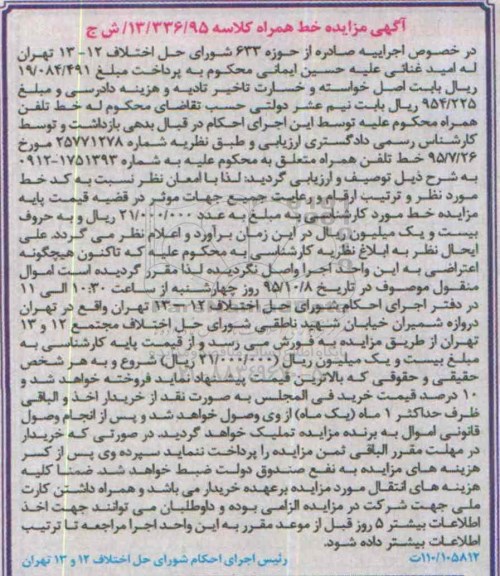 آگهی مزایده خط همراه کلاسه ۱۳/۳۳۶/۹۵/ ش ج
در خصوص اجراییه صادره از حوزه ۶۳۳ شورای حل اختلاف ۱۲- ۱۳ تهران
له امید غنائی علیه حسین ایمانی محکوم به پرداخت مبلغ ۱۹/۰۸۴/۴۹۱
ریال بابت اصل خواسته و خسارت تاخیر تادیه و هزینه دادرسی و مبلغ
۹۵۴/۲۲۵ ریال بابت نیم عشر دولتی حسب تقاضای محکوم له خط تلفن
همراه محکوم علیه توسط این اجرای احکام در قبال بدهی بازداشت و توسط
کارشناس رسمی دادگستری ارزیابی و طبق نظریه شماره ۲۵۷۷۱۲۷۸ مورخ
۹۵/۷/۲۶ خط تلفن همراه متعلق به محکوم علیه به شماره ۱۷۵۱۳۹۳-۰۹۱۲
به شرح ذیل توصیف و ارزیابی گردید: لذا با امعان نظر نسبت به کد خط
مورد نظر و ترتیب ارقام و رعایت جمیع جهات موثر در قضیه قیمت پایه
مزایده خط مورد کارشناسی به مبلغ به عدد ۲۱/۰۰۰/۰۰۰ ریال و به حروف
بیست و یک میلیون ریال در این زمان برآورد و اعلام نظر می گردد علی
ایحال نظر به ابلاغ نظریه کارشناسی به محکوم علیه که تاکنون هیچگونه
اعتراضی به این واحد اجرا واصل نگردیده لذا مقرر گردیده است اموال
منقول موصوف در تاریخ ۹۵/۱۰/۸ روز چهارشنبه از ساعت ۱۰:۳۰ الی ۱۱
در دفتر اجرای احکام شورای حل اختلاف ۱۲ — ۱۳ تهران واقع در تهران
دروازه شمیران خیابان شهید ناطقی شورای حل اختلاف مجتمع ۱۲ و ۱۳
تهران از طریق مزایده به فروش می رسد و از قیمت پایه کارشناسی به
مبلغ بیست و یک میلیون ریال (۲۱/۰۰۰/۰۰۰ ریال) شروع و به هر شخص
حقیقی و حقوقی که بالاترین قیمت پیشنهاد نماید فروخته خواهد شد و
۱۰ درصد قیمت خرید فی المجلس به صورت نقد از خریدار اخذ و الباقی
ظرف حداکثر ۱ ماه (یک ماه) از وی وصول خواهد شد و پس از انجام وصول
قانونی اموال به برنده مزایده تملیک خواهد گردید. در صورتی که خریدار
در مهلت مقرر الباقی ثمن مزایده را پرداخت ننماید سپرده وی پس از کسر
هزینه های مزایده به نفع صندوق دولت ضبط خواهد شد ضمنا کلیه
هزینه های انتقال مورد مزایده برعهده خریدار می باشد و همراه داشتن کارت
ملی جهت شرکت در مزایده الزامی بوده و داوطلبان می توانند جهت اخذ
اطلاعات بیشتر ۵ روز قبل از موعد مقرر به این واحد اجرا مراجعه تا ترتیب
اطلاعات بیشتر داده شود.
۱۱۰/۱۰۵۸۱۲ت رئیس اجرای احکام شورای حل اختلاف ۱۲ و ۱۳ تهران